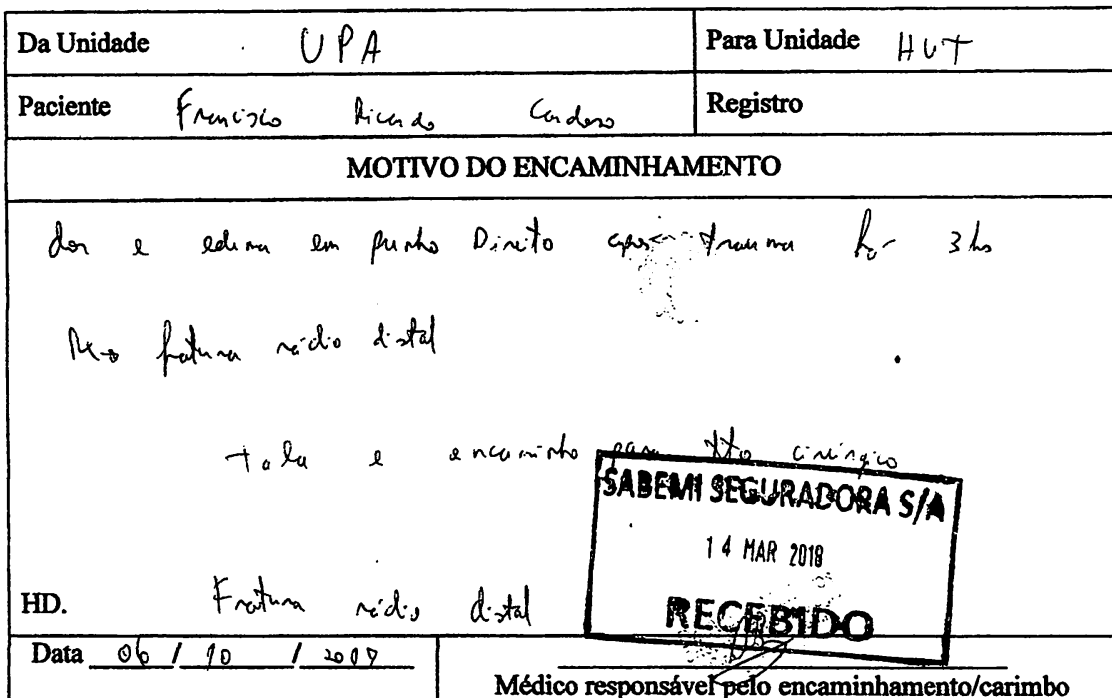 Da Unidade UPA Para Unidade HUT
Paciente Francisco Ricardo Cardoso Registro
MOTIVO DO ENCAMINHAMENTO
dor e edema em punho Direito após trauma há 3 hs
fratura rádio distal
tala e encaminho para tto cirúrgico
SABEMI SEGURADORA S/A
14 MAR 2018
RECEBIDO
HD. Fratura rádio distal
Data 06 / 10 /
Médico responsável pelo encaminhamento/carimbo